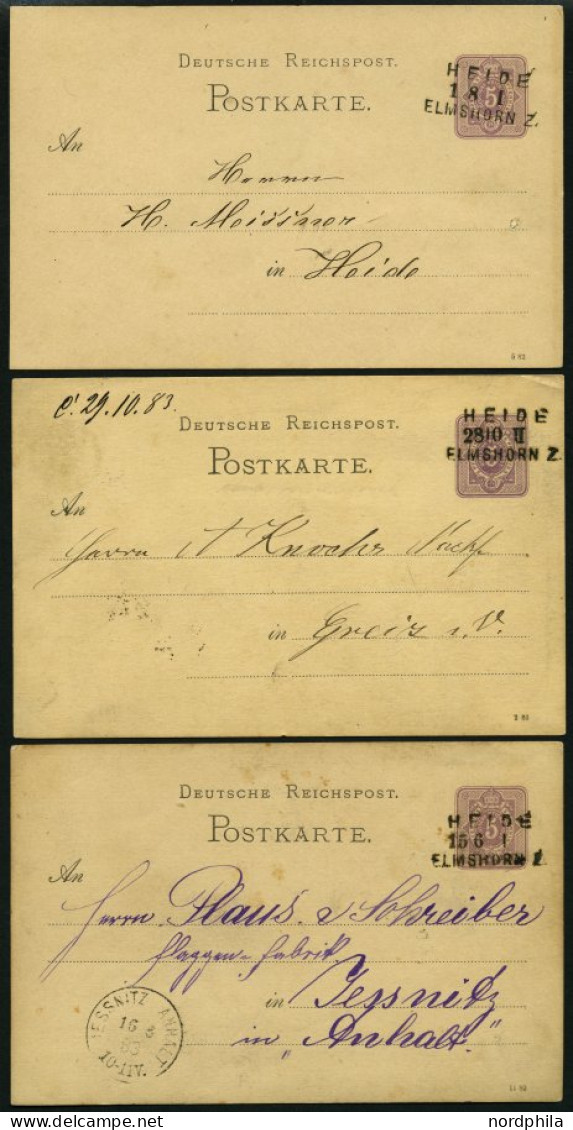 DEUTSCHE REICHSPOST.
POSTKARTE.
HEIDE
1 8 I
ELMSHORN Z.
5
An
Herrn
H. Meissner
in Heide
C. 29.10.83.
DEUTSCHE REICHSPOST.
POSTKARTE.
HEIDE
28 10 II
ELMSHORN Z.
An
Herrn A Knoche Nachf
in Greiz i. V.
DEUTSCHE REICHSPOST.
POSTKARTE.
HEIDE
15 6 I
ELMSHORN Z.
5
An
Herrn Plaus & Schreiber
Flaggen-Fabrik
in Jessnitz
in "Anhalt."
JESSNITZ ANHALT
16
10-11V.
www.nordphila.com